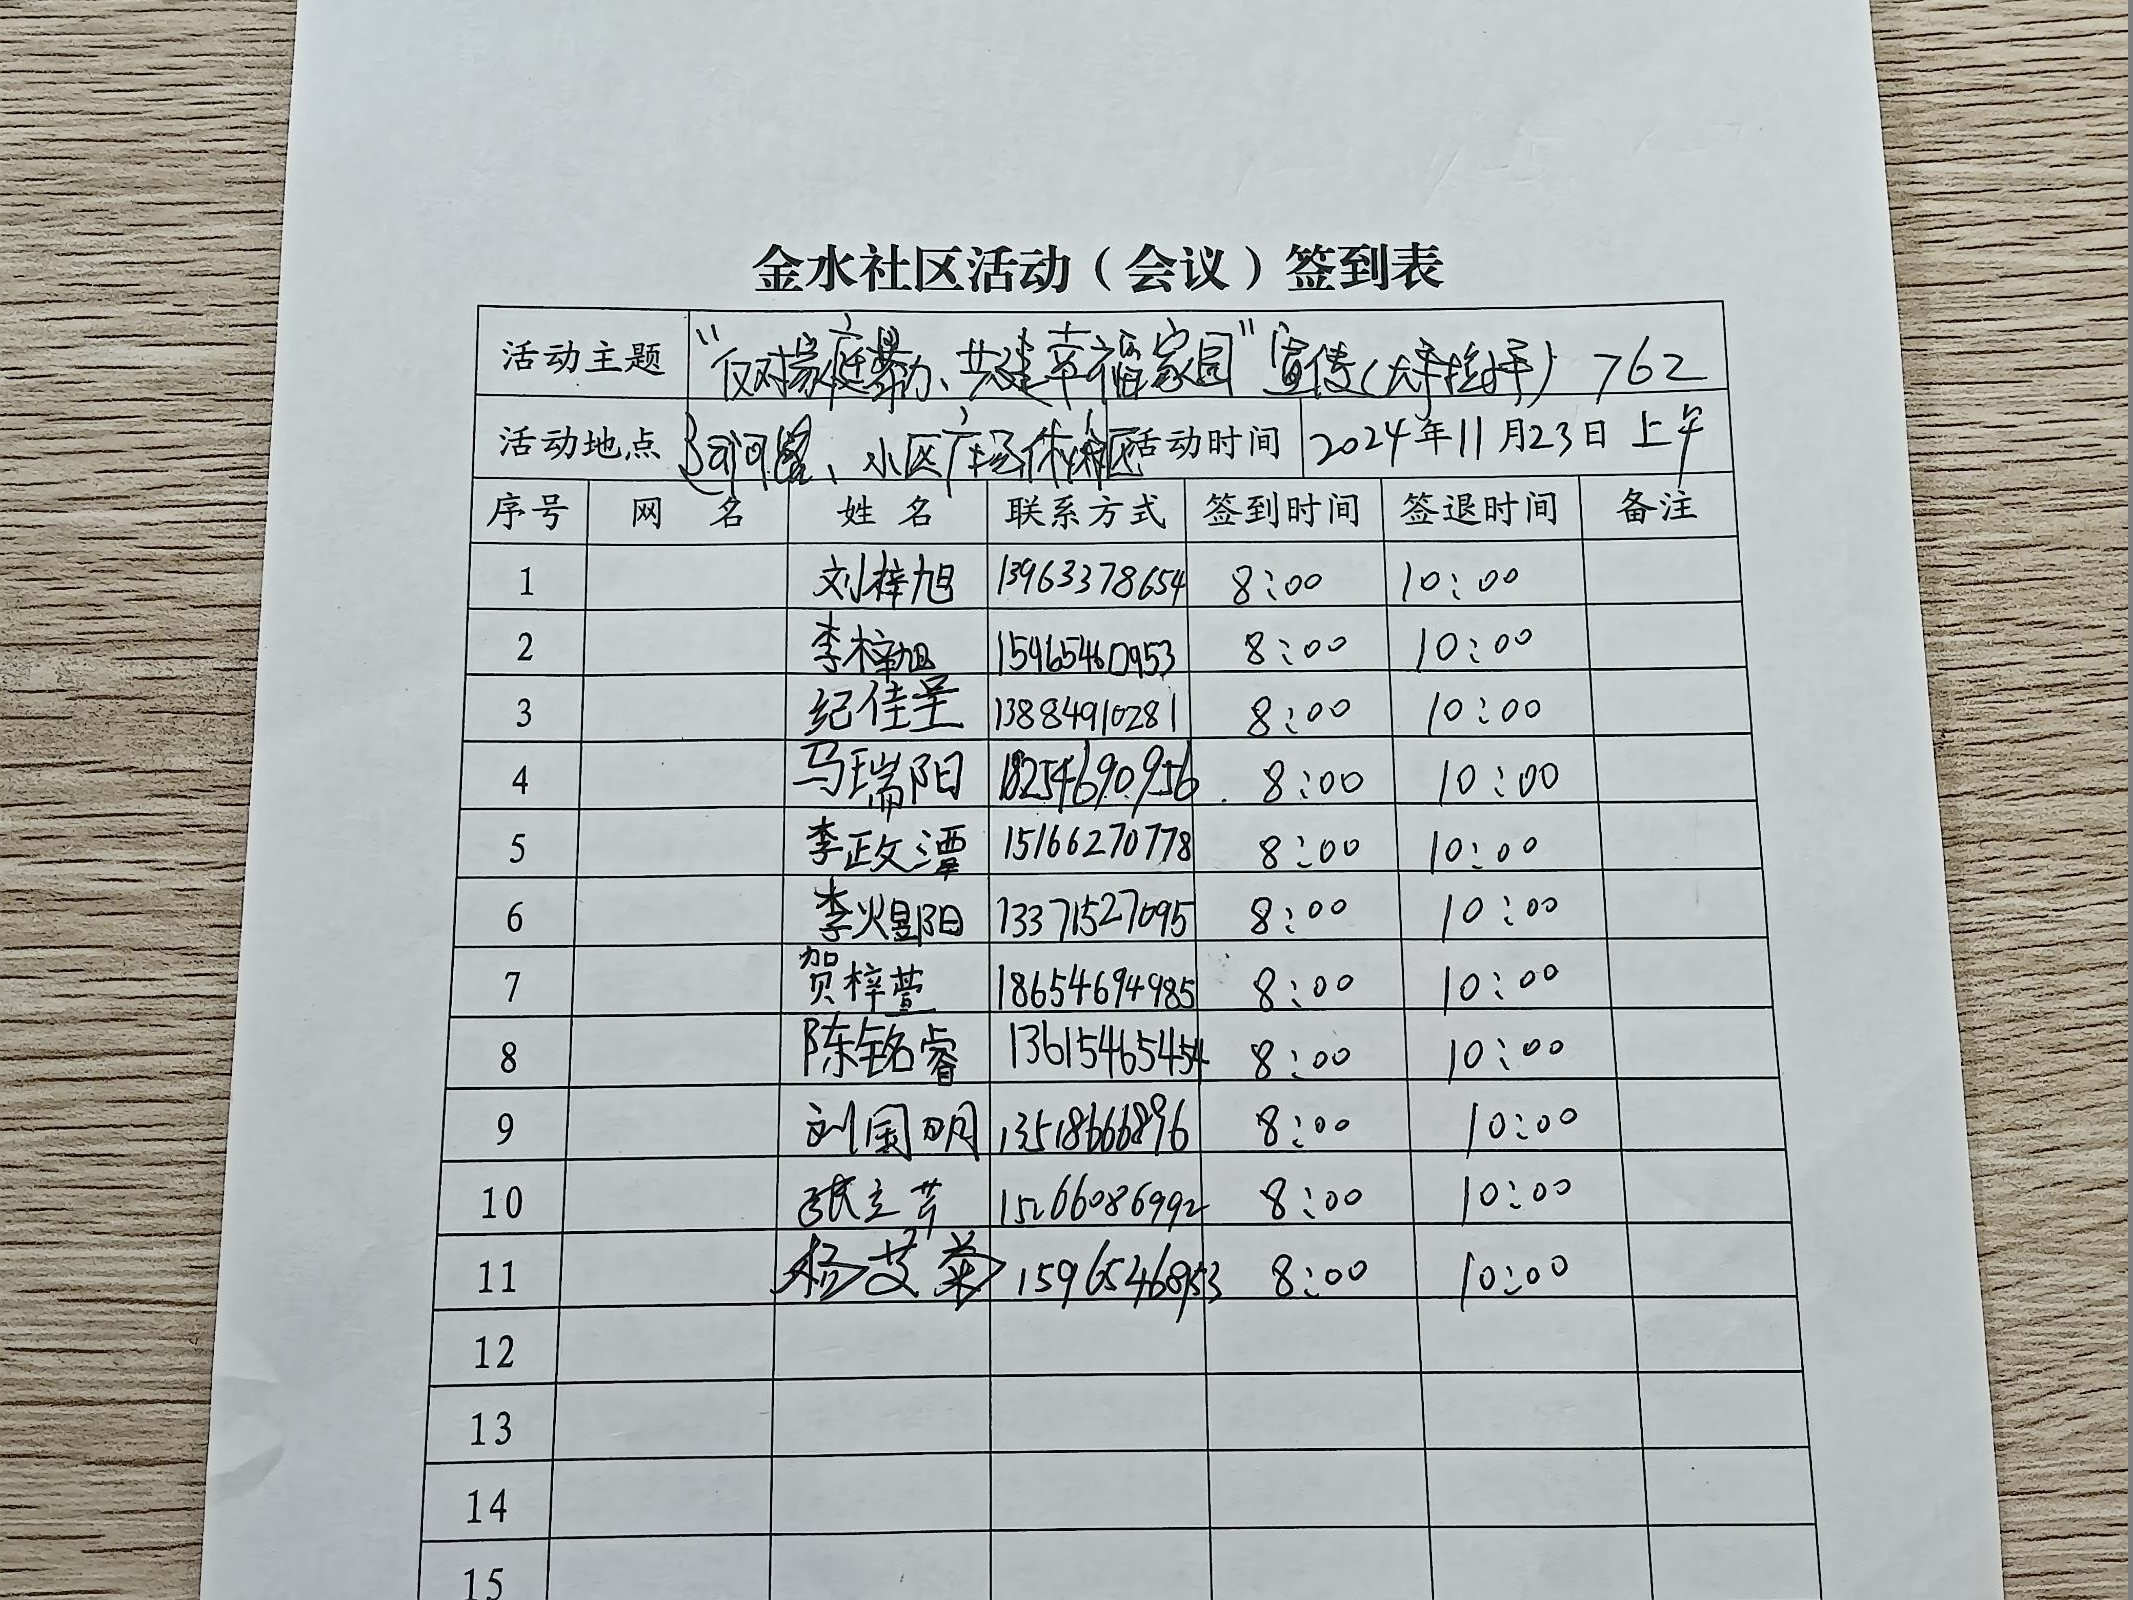 金水社区活动（会议）签到表
活动主题 “反对家庭暴力、共建幸福家园”宣传（大手拉小手） 762
活动地点 小区广场休闲区 活动时间 2024年11月23日 上午
序号 网 名 姓 名 联系方式 签到时间 签退时间 备注
1 刘梓旭 13963378654 8:00 10:00
2 李梓旭 15965460953 8:00 10:00
3 纪佳呈 13884910281 8:00 10:00
4 马瑞阳 18254690956 8:00 10:00
5 李政潭 15166270778 8:00 10:00
6 李煜阳 13371527095 8:00 10:00
7 贺梓萱 18654694985 8:00 10:00
8 陈铭睿 13615465454 8:00 10:00
9 刘国明 13518666896 8:00 10:00
10 张立芹 15266086992 8:00 10:00
11 杨艾菊 8:00 10:00
12
13
14
15